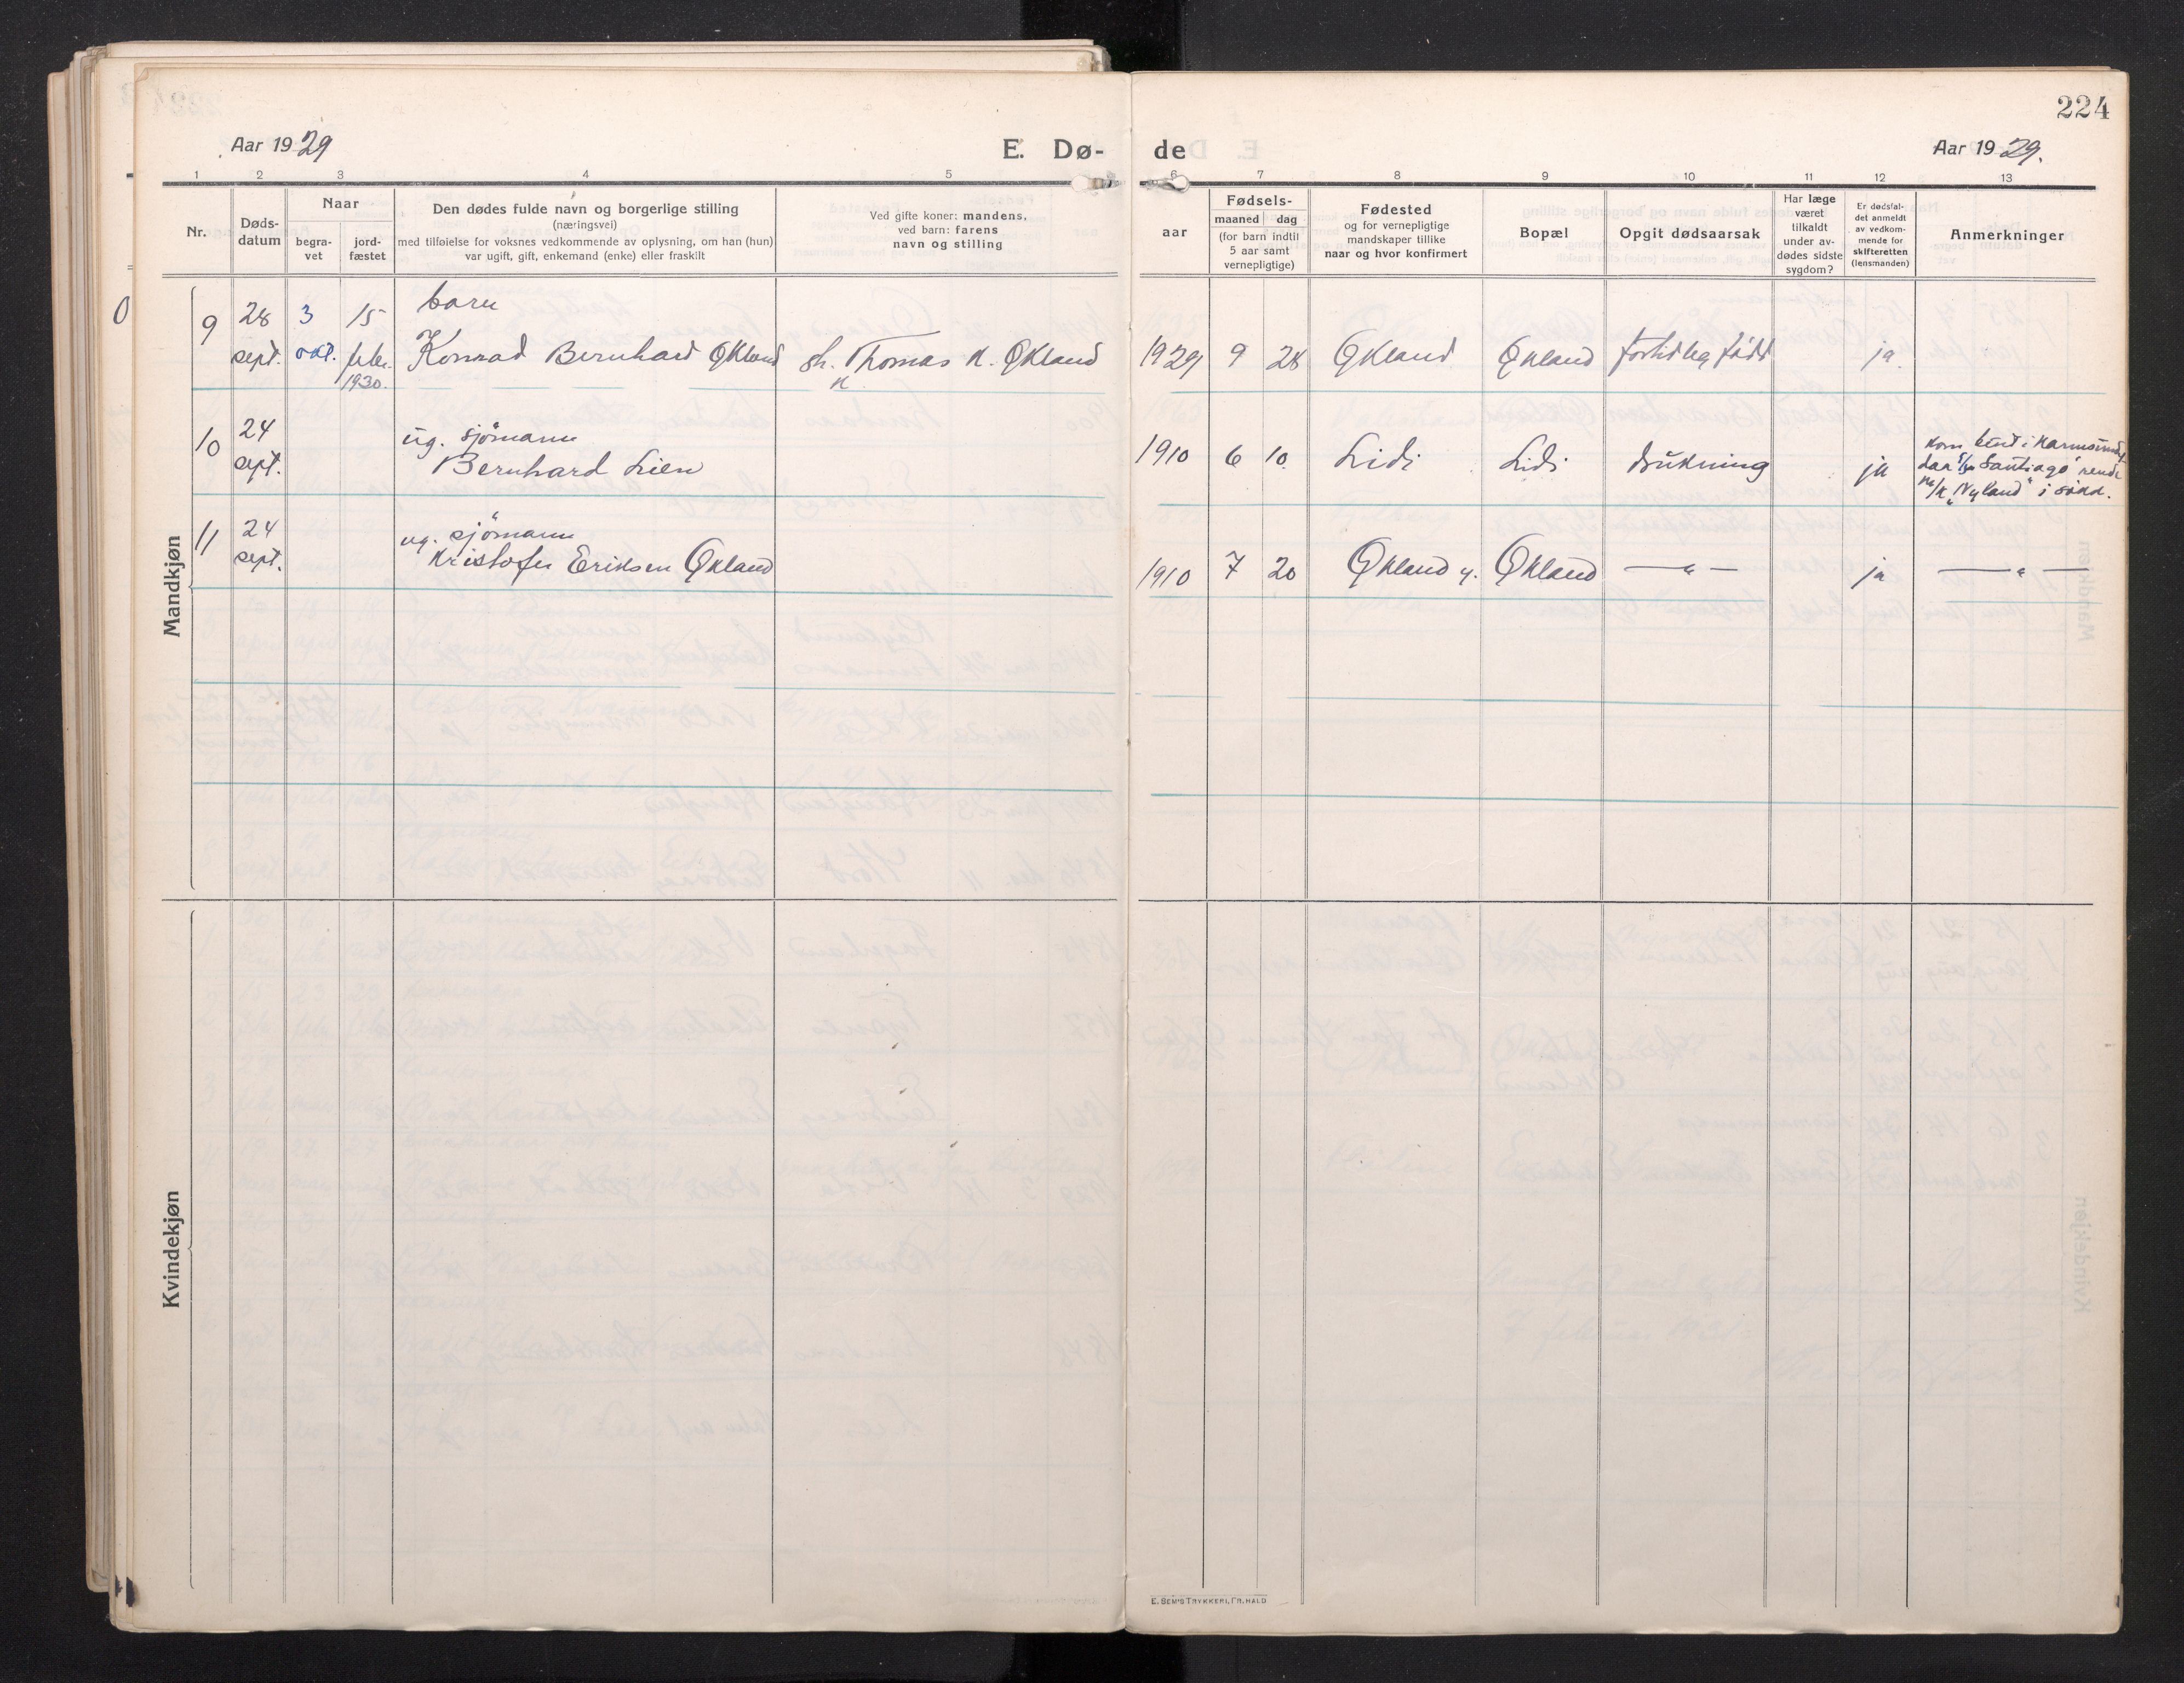 224
Aar 1929
E. Dø-
de
Aar 1929.
1 2 3 4 5 6 7 8 9 10 11 12 13
Nr.
Døds-
datum
Naar
begra-
vet
jord-
fæstet
Den dødes fulde navn og borgerlige stilling
(næringsvei)
med tilføielse for voksnes vedkommende av oplysning, om han (hun)
var ugift, gift, enkemand (enke) eller fraskilt
Ved gifte koner: mandens,
ved barn: farens
navn og stilling
aar
Fødsels-
maaned dag
(for barn indtil
5 aar samt
vernepligtige)
Fødested
og for vernepligtige
mandskaper tillike
naar og hvor konfirmert
Bopæl
Opgit dødsaarsak
Har læge
været
tilkaldt
under av-
dødes sidste
sygdom?
Er dødsfal-
det anmeldt
av vedkom-
mende for
skifteretten
(lensmanden)
Anmerkninger
Mandkjøn
9 28 3 15 barn
sept. okt. febr. Konrad Bernhard Økland Thomas K. Økland 1929 9 28 Økland Økland fortidleg födt ja.
1930.
10 24 ug. sjömann
sept. Bernhard Lien 1910 6 10 Lidi Lidi drukning ja
Kom burt i Karmsundet
daa "Santiago" rende
M/K "Nyland" i sökk.
11 24 ug. sjömann
sept. Kristofer Eriksen Økland 1910 7 20 Økland y. Økland — " — ja — " —
Kvindekjøn
E. SEM'S TRYKKERI, FR.HALD